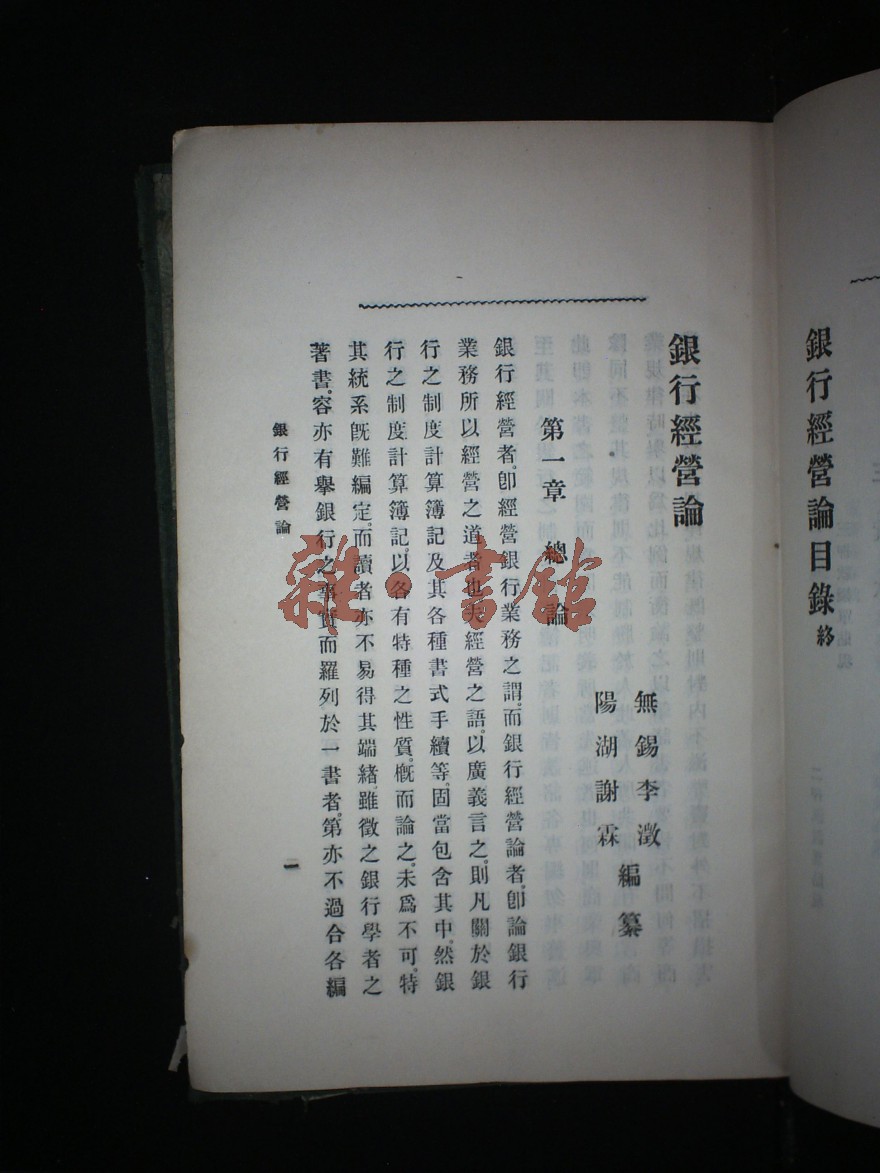 銀行經營論目錄終
銀行經營論
無錫李澂
陽湖謝霖
編纂
第一章 總論
銀行經營者。卽經營銀行業務之謂。而銀行經營論者。卽論銀行
業務所以經營之道者也。夫經營之語。以廣義言之。則凡關於銀
行之制度計算簿記及其各種書式手續等。固當包含其中。然銀
行之制度計算簿記。以各有特種之性質。槪而論之。未爲不可。特
其統系旣難編定。而讀者亦不易得其端緒。雖徵之銀行學者之
著書。容亦有舉銀行之事實而羅列於一書者。第亦不過合各編
銀行經營論
一
雜·書館